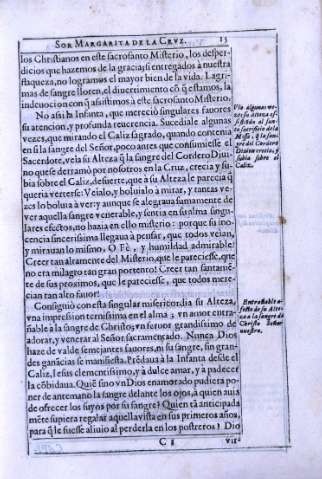 SOR MARGARITA DE LA CRVZ. 15
los Christianos en este sacrosanto Misterio, los desper-
dicios que hazemos de la gracia; si entregados à nuestra
flaqueza, no logramos el mayor bien de la vida. Lagri-
mas de sangre lloren, el divertimiento cõ q̃ estamos, la
indeuocion con q̃ assistimos à este sacrosanto Misterio.
No assi la Infanta, que mereciò singulares fauores
su atencion, y profunda reuerencia. Sucediale algunas
vezes, que mirando el Caliz sagrado, quando contenia
en si la sangre del Señor, poco antes que consumiesse el
Sacerdote, veîa su Alteza q̃ la sangre del Cordero Diui-
no que se derramò por nosotros en la Cruz, crecia y su-
bia sobre el Caliz, de suerte, que à su Alteza le parecia q̃
queria verterse: Veialo, y boluialo à mirar, y tantas ve-
zes lo boluia à ver; y aunque se alegraua sumamente de
ver aquella sangre venerable, y sentia en su alma singu-
lares efectos, no hazia en ello misterio: porque su ino-
cencia sincerissima llegaua à pensar, que todos veían,
y mirauan lo mismo. O Fè, y humildad admirable!
Creer tan altamente del Misterio, que le pareciesse, que
no era milagro tan gran portento! Creer tan santamē-
te de sus proximos, que le pareciesse, que todos mere-
cian tan alto fauor!
Consiguiò con esta singular misericordia su Alteza,
vna impression ternissima en el alma; vn amor entra-
ñable à la sangre de Christo; vn feruor grandissimo de
adorar, y venerar al Señor sacramentado. Nunca Dios
haze de valde semejantes fauores, ni su sangre, sin gran-
des ganãcias se manifiesta. Prēdaua à la Infanta desde el
Caliz, Iesus clementissimo, y à dulce amar, y à padecer
la cõbidaua. Quiē sino vn Dios enamorado pudiera po-
ner de antemano la sangre delante los ojos, à quien auia
de ofrecer los suyos por su sangre? Quien tã anticipada
mēte supiera regalar aquella vista en sus primeros años,
para q̃ le fuesse aliuio al perderla en los postreros? Dio
vir-
Vio algunas ve-
zes su Alteza as-
sistiendo al san-
to Sacrificio de la
Missa, q̃ la san-
gre del Cordero
Diuino crecia, y
subia sobre el
Caliz.
Entrañable a-
fecto de su Alte-
za a la sangre de
Christo Señor
nuestro.